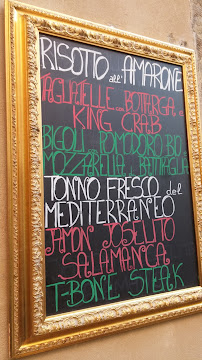 RISOTTO all' AMARONE
TAGLIATELLE con BOTARGA e
KING CRAB
BIGOLI con POMODORO BIO
MOZZARELLA e BATTAGLIA
TONNO FRESCO del
MEDITERRANEO
JAMON JOSELITO
SALAMANCA
T-BONE STEAK